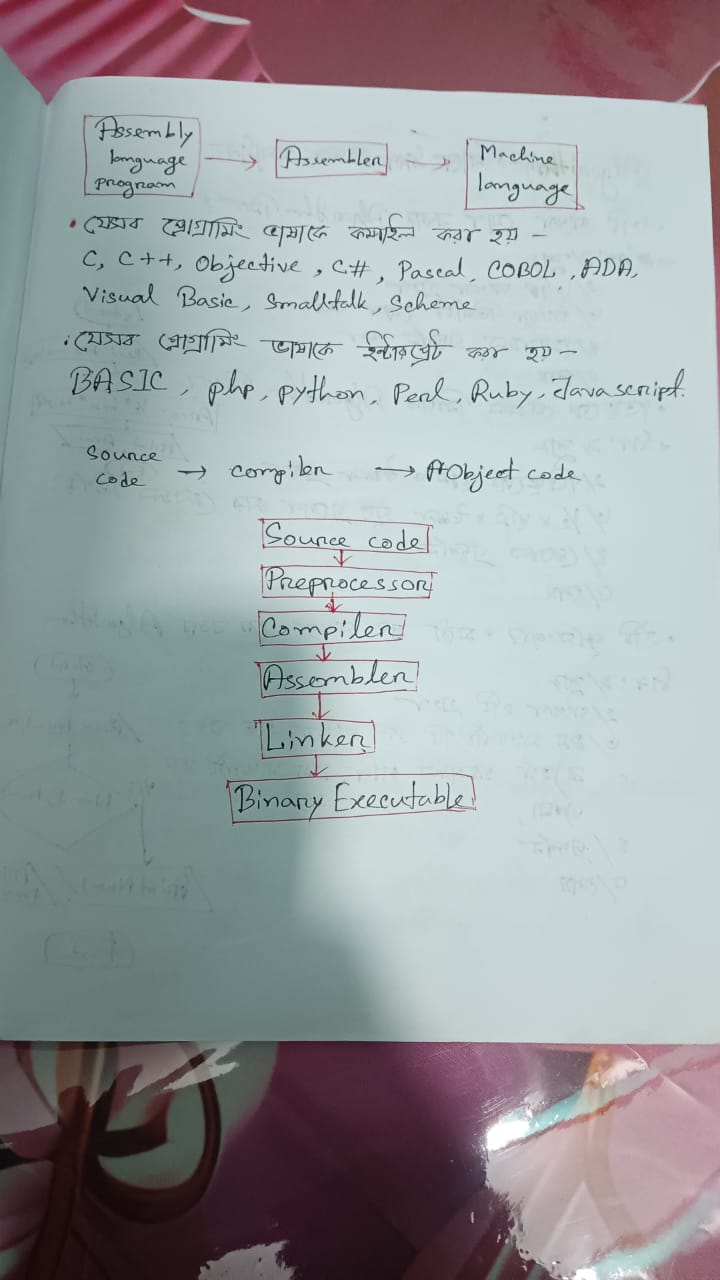 Assembly language program → Assembler → Machine language
• যেসব প্রোগ্রামিং ভাষাকে কম্পাইল করা হয় –
C, C++, Objective, C#, Pascal, COBOL, ADA,
Visual Basic, Smalltalk, Scheme
• যেসব প্রোগ্রামিং ভাষাকে ইন্টারপ্রেট করা হয় –
BASIC, php, python, Perl, Ruby, Javascript.
Source code → compiler → Object code
Source code
↓
Preprocessor
↓
Compiler
↓
Assembler
↓
Linker
↓
Binary Executable